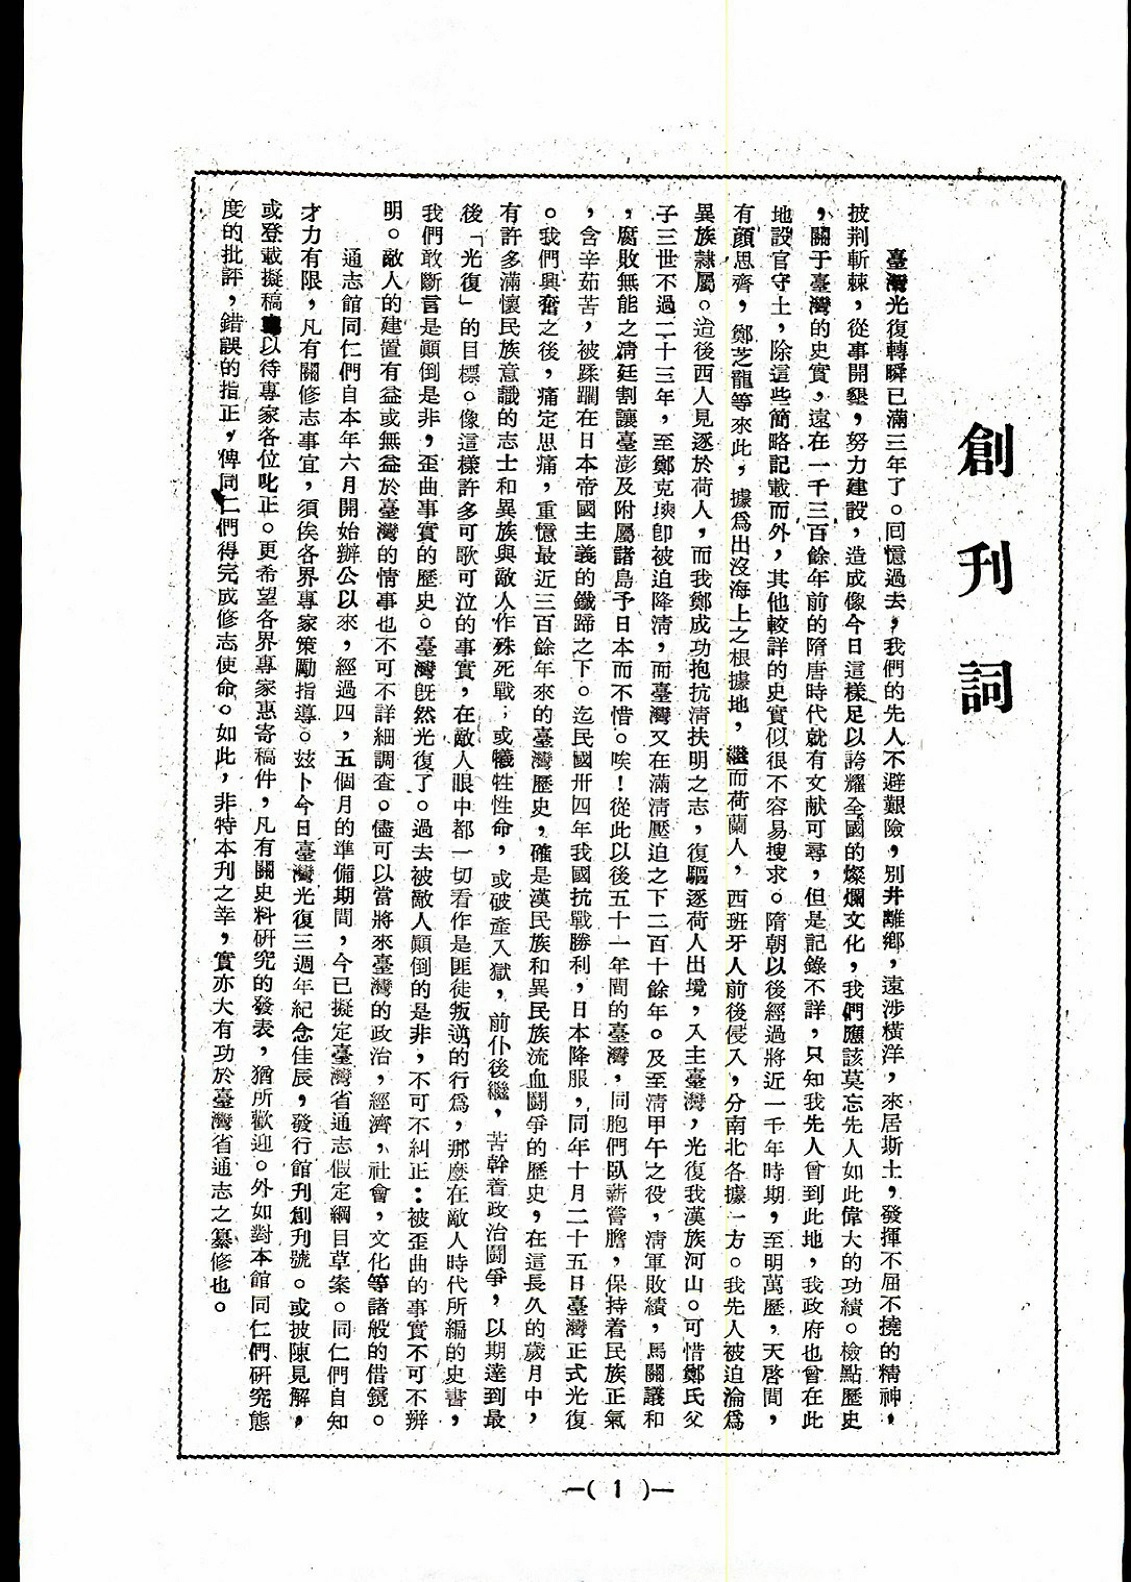 創刊詞
臺灣光復轉瞬已滿三年了。回憶過去，我們的先人不避艱險，別井離鄉，遠涉橫洋，來居斯土，發揮不屈不撓的精神，
披荆斬棘，從事開墾，努力建設，造成像今日這樣足以誇耀全國的燦爛文化，我們應該莫忘先人如此偉大的功績。檢點歷史
，關于臺灣的史實，遠在一千三百餘年前的隋唐時代就有文献可尋，但是記錄不詳，只知我先人曾到此地，我政府也曾在此
地設官守土，除這些簡略記載而外，其他較詳的史實似很不容易搜求。隋朝以後經過將近一千年時期，至明萬歷，天啓間，
有顏思齊，鄭芝龍等來此，據爲出沒海上之根據地，繼而荷蘭人，西班牙人前後侵入，分南北各據一方。我先人被迫淪爲
異族隸屬。迨後西人見逐於荷人，而我鄭成功抱抗清扶明之志，復驅逐荷人出境，入主臺灣，光復我漢族河山。可惜鄭氏父
子三世不過二十三年，至鄭克塽卽被迫降清，而臺灣又在滿淸壓迫之下二百十餘年。及至淸甲午之役，淸軍敗績，馬關議和
，腐敗無能之淸廷割讓臺澎及附屬諸島予日本而不惜。唉！從此以後五十一年間的臺灣，同胞們臥薪嘗膽，保持着民族正氣
，含辛茹苦，被蹂躪在日本帝國主義的鐵蹄之下。迄民國卅四年我國抗戰勝利，日本降服，同年十月二十五日臺灣正式光復
。我們興奮之後，痛定思痛，重憶最近三百餘年來的臺灣歷史，確是漢民族和異民族流血鬪爭的歷史，在這長久的歲月中，
有許多滿懷民族意識的志士和異族與敵人作殊死戰；或犧牲性命，或破產入獄，前仆後繼，苦幹着政治鬪爭，以期達到最
後「光復」的目標。像這樣許多可歌可泣的事實，在敵人眼中都一切看作是匪徒叛逆的行爲，那麼在敵人時代所編的史書，
我們敢斷言是顚倒是非，歪曲事實的歷史。臺灣旣然光復了。過去被敵人顚倒的是非，不可不糾正：被歪曲的事實不可不辨
明。敵人的建置有益或無益於臺灣的情事也不可不詳細調查。儘可以當將來臺灣的政治，經濟，社會，文化等諸般的借鏡。
通志館同仁們自本年六月開始辦公以來，經過四，五個月的準備期間，今已擬定臺灣省通志假定綱目草案。同仁們自知
才力有限，凡有關修志事宜，須俟各界專家策勵指導。玆卜今日臺灣光復三週年紀念佳辰，發行館刊創刊號。或披陳見解，
或登載擬稿以待專家各位叱正。更希望各界專家惠寄稿件，凡有關史料研究的發表，猶所歡迎。外如對本館同仁們研究態
度的批評，錯誤的指正，俾同仁們得完成修志使命。如此，非特本刊之幸，實亦大有功於臺灣省通志之纂修也。
—( 1 )—